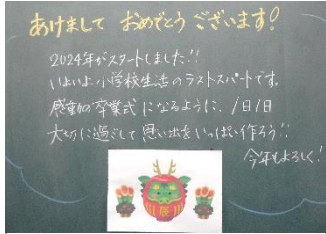 あけまして おめでとう ございます!
2024年がスタートしました!!
いよいよ小学校生活のラストスパートです。
感動の卒業式になるように、1日1日
大切に過ごして思い出をいっぱい作ろう!!
今年もよろしく!